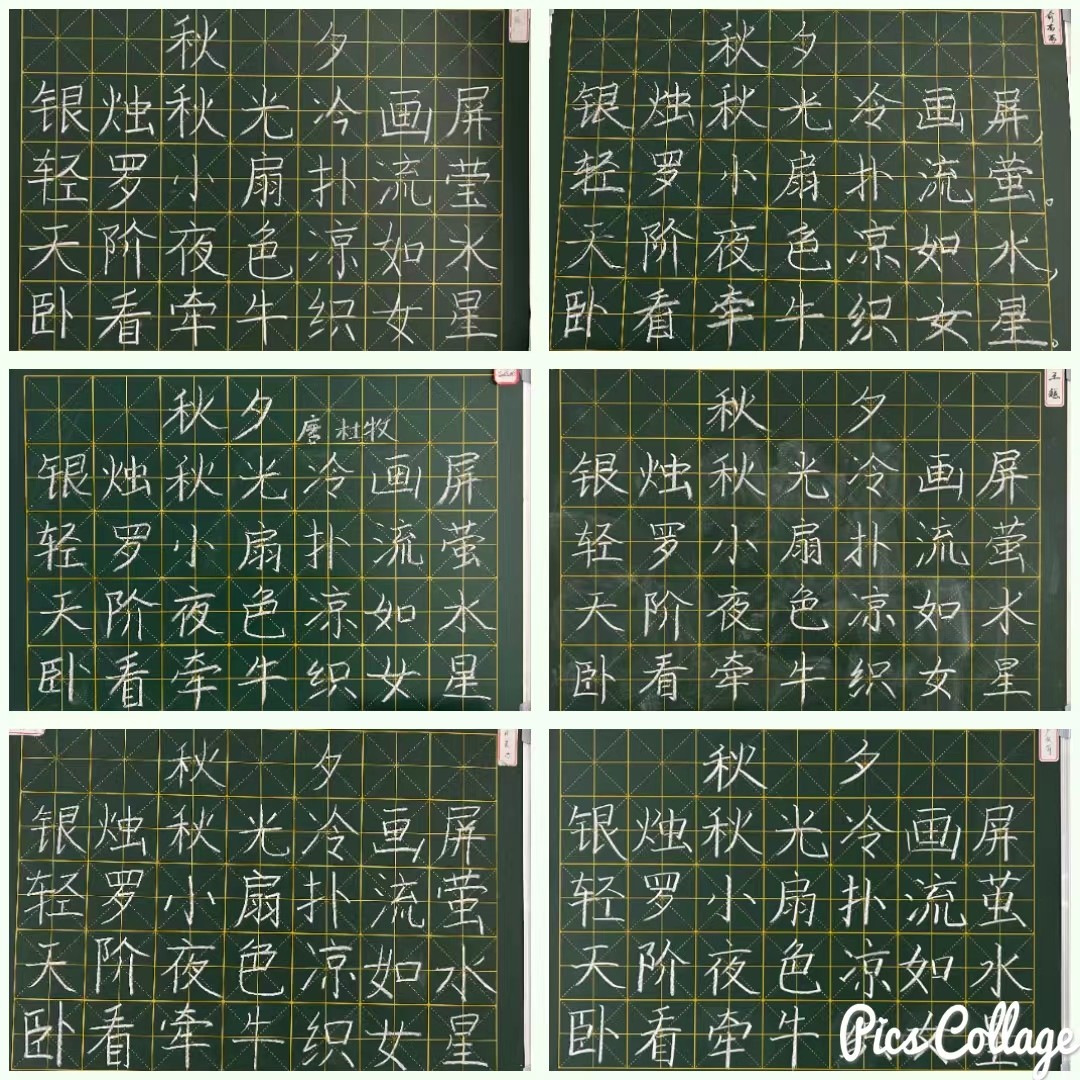 秋夕
银烛秋光冷画屏
轻罗小扇扑流莹
天阶夜色凉如水
卧看牵牛织女星
秋夕
银烛秋光冷画屏，
轻罗小扇扑流萤。
天阶夜色凉如水，
卧看牵牛织女星。
秋夕 唐 杜牧
银烛秋光冷画屏
轻罗小扇扑流萤
天阶夜色凉如水
卧看牵牛织女星
秋夕
银烛秋光冷画屏
轻罗小扇扑流萤
天阶夜色凉如水
卧看牵牛织女星
秋夕
银烛秋光冷画屏
轻罗小扇扑流萤
天阶夜色凉如水
卧看牵牛织女星
秋夕
银烛秋光冷画屏
轻罗小扇扑流茧
天阶夜色凉如水
卧看牵牛
Pics Collage